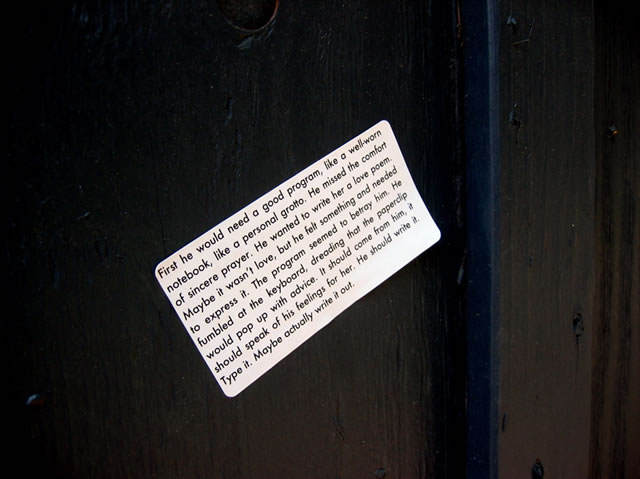 First he would need a good program, like a well-worn
notebook, like a personal grotto. He missed the comfort
of sincere prayer. He wanted to write her a love poem.
Maybe it wasn't love, but he felt something and needed
to express it. The program seemed to betray him. He
fumbled at the keyboard, dreading that the paperclip
would pop up with advice. It should come from him, it
should speak of his feelings for her. He should write it.
Type it. Maybe actually write it out.